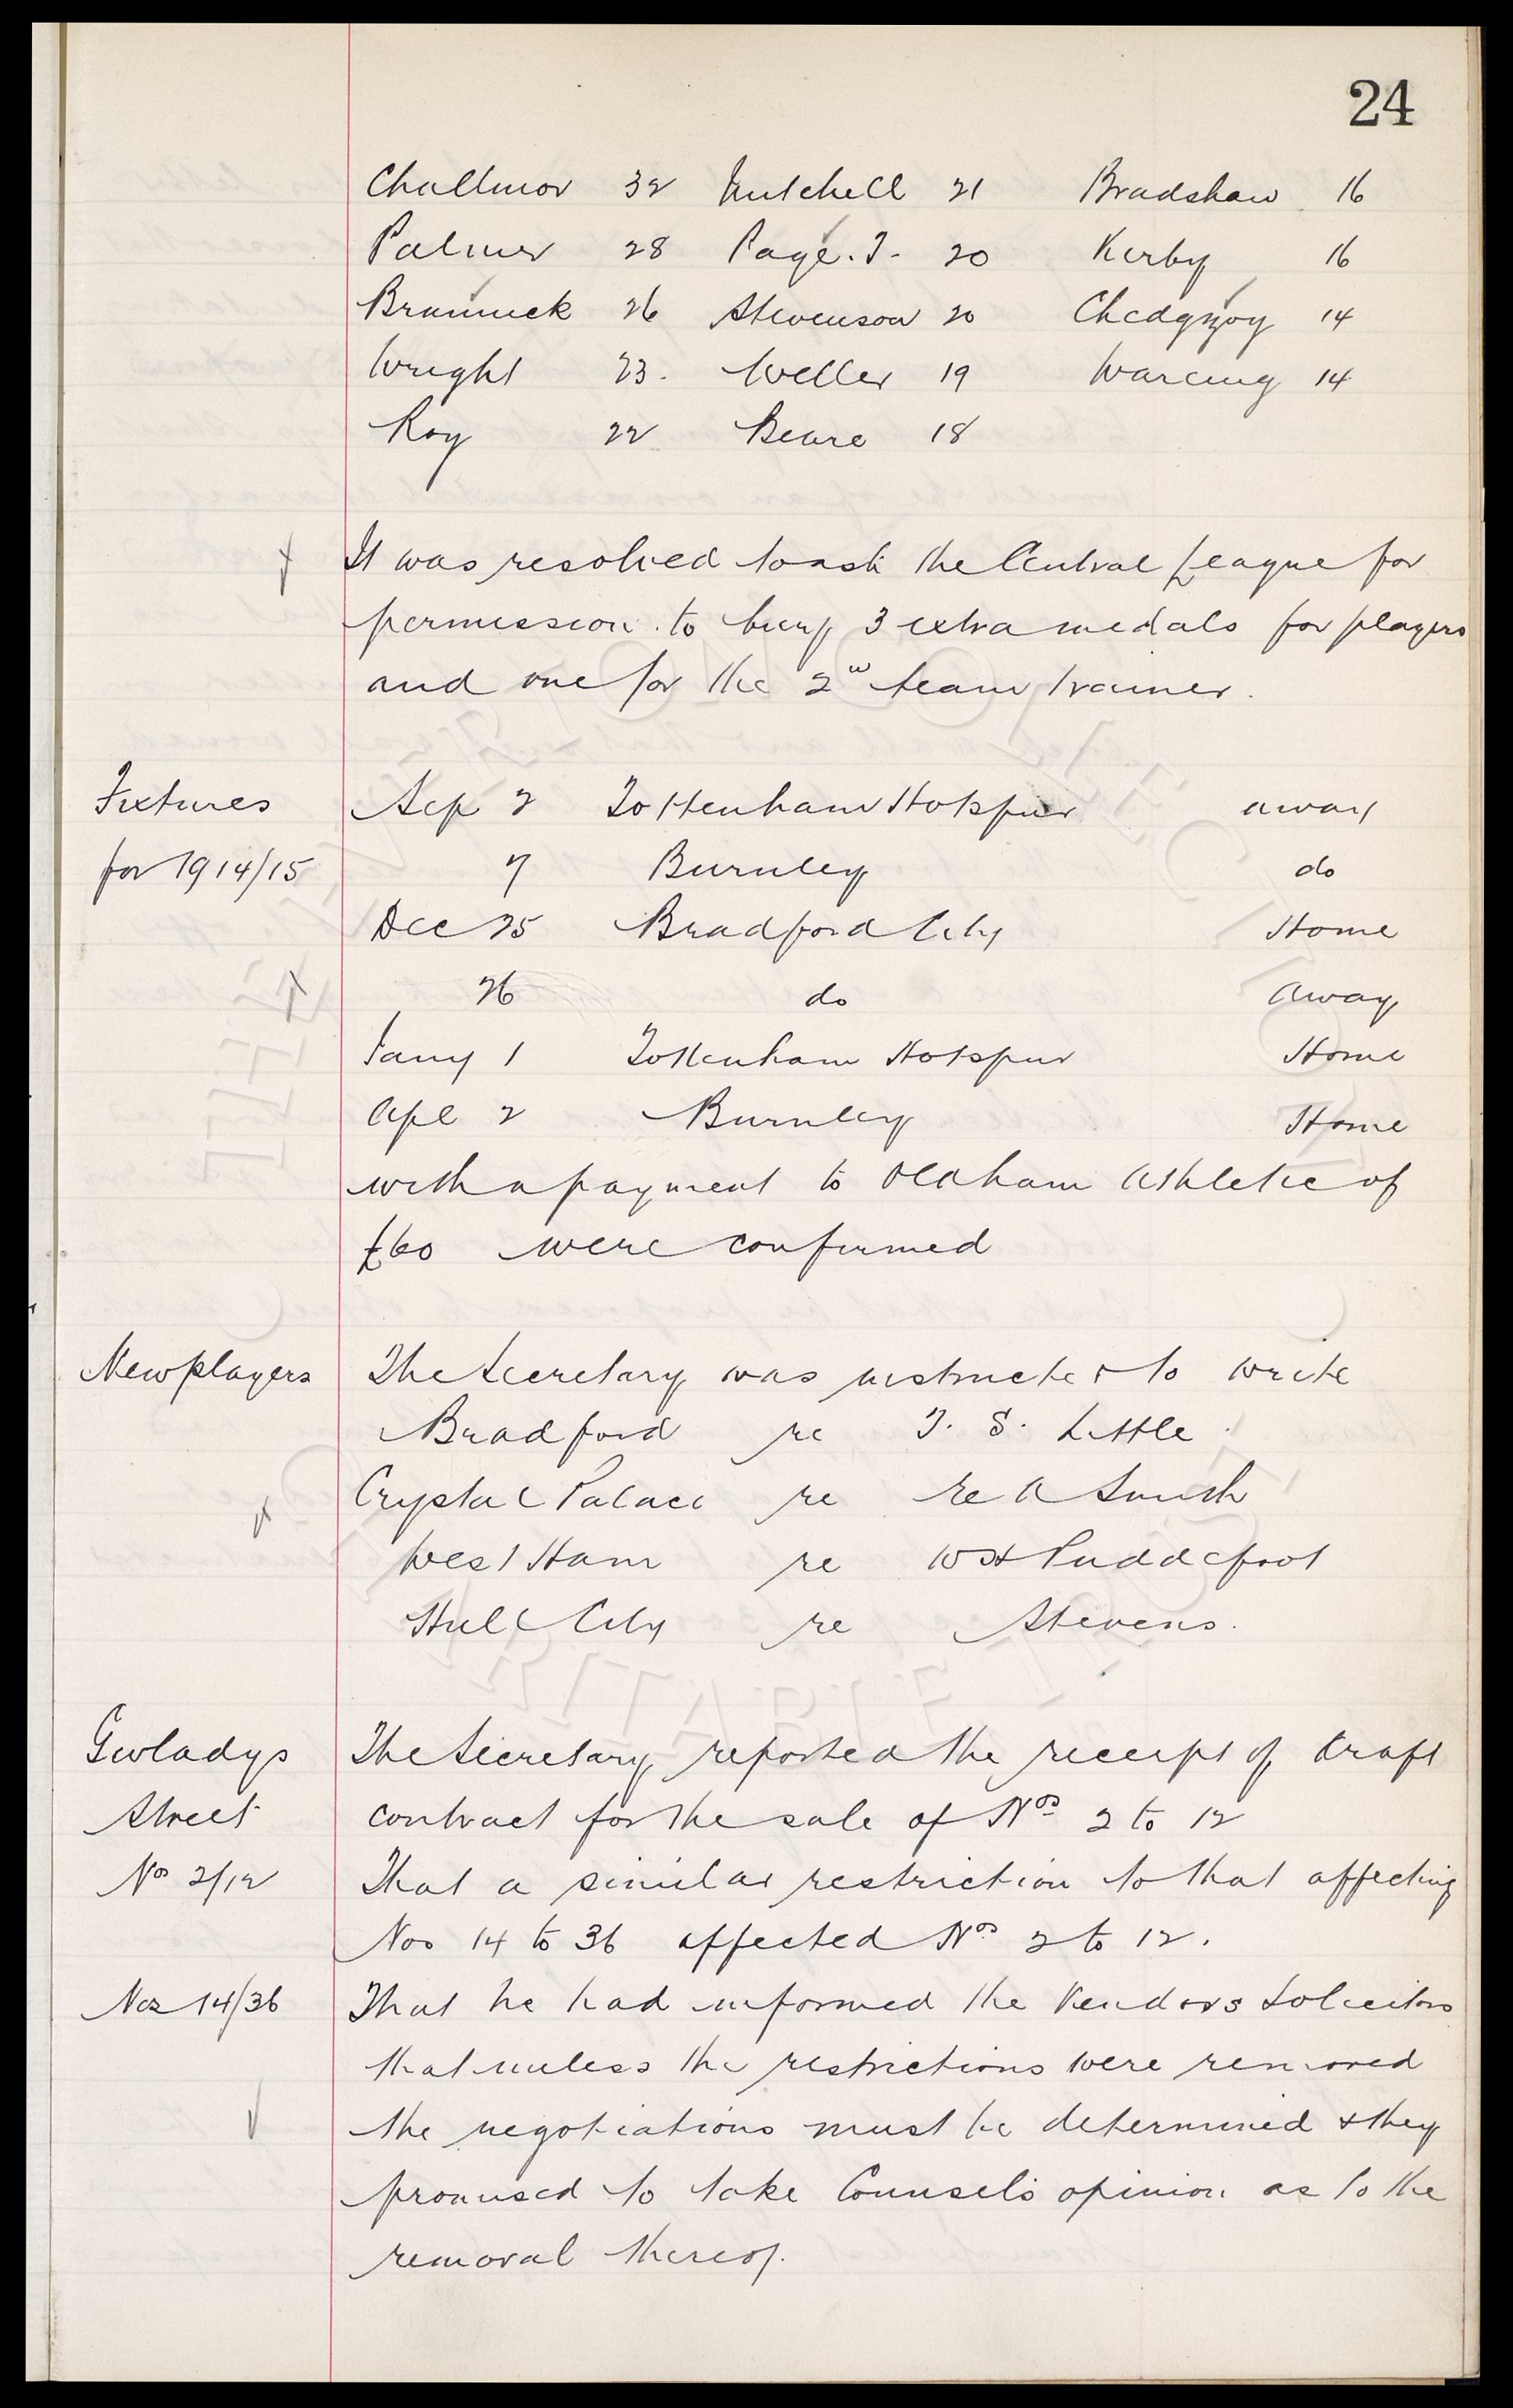 24
Challinor 32 Mitchell 21 Bradshaw 16
Palmer 28 Page. T. 20 Kirby 16
Brannick 26 Stevenson 20 Chedgzoy 14
Wright 23. Weller 19 Wareing 14
Roy 22 Beare 18
It was resolved to ask the Central League for
permission to buy 3 extra medals for players
and one for the 2nd team trainer.
Fixtures Sep 2 Tottenham Hotspur away
for 1914/15 7 Burnley do
Dec 25 Bradford City Home
26 do Away
Jany 1 Tottenham Hotspur Home
Apl 2 Burnley Home
with a payment to Oldham Athletic of
£60 were confirmed
New players The Secretary was instructed to write
Bradford re T. S. Little.
Crystal Palace re re A Smith
West Ham re Puddefoot
Hull City re Stevens.
Gwladys The Secretary reported the receipt of draft
Street contract for the sale of Nos 2 to 12
Nos 2/12 That a similar restriction to that affecting
Nos 14 to 36 affected Nos 2 to 12.
Nos 14/36 That he had informed the Vendors Solicitors
that unless the restrictions were removed
the negotiations must be determined & they
promised to take Counsel's opinion as to the
removal thereof.